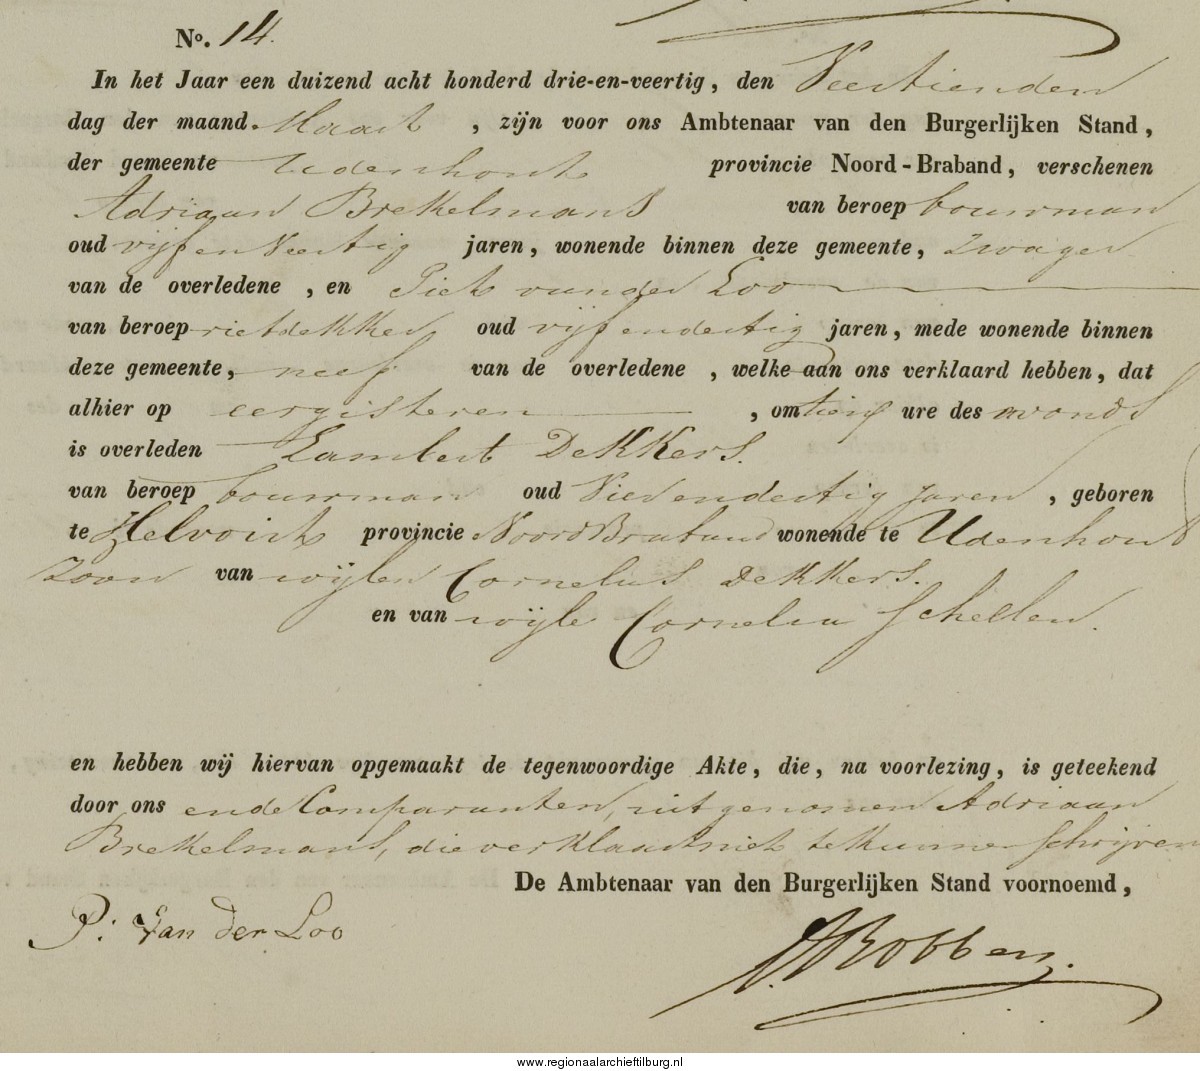 No. 14.
In het Jaar een duizend acht honderd drie-en-veertig, den Veertienden
dag der maand Maart , zijn voor ons Ambtenaar van den Burgerlijken Stand,
der gemeente Udenhout provincie Noord-Braband, verschenen
Adriaan Brekelmans van beroep bouwman
oud vijf en veertig jaren, wonende binnen deze gemeente, zwager
van de overledene , en Piet van der Loo
van beroep rietdekker oud vijf en dertig jaren, mede wonende binnen
deze gemeente, neef van de overledene , welke aan ons verklaard hebben, dat
alhier op eergisteren , om tien ure des avonds
is overleden Lambert Dekkers.
van beroep bouwman oud Vier en dertig jaren , geboren
te Helvoirt provincie Noord Braband wonende te Udenhout
zoon van wijlen Cornelus Dekkers.
en van wijle Cornelia Schellen.
en hebben wij hiervan opgemaakt de tegenwoordige Akte, die, na voorlezing, is geteekend
door ons en de Comparanten, uitgenomen Adriaan
Brekelmans, die verklaart niet te kunnen schrijven
De Ambtenaar van den Burgerlijken Stand voornoemd,
P: Van der Loo
Robben
www.regionaalarchieftilburg.nl